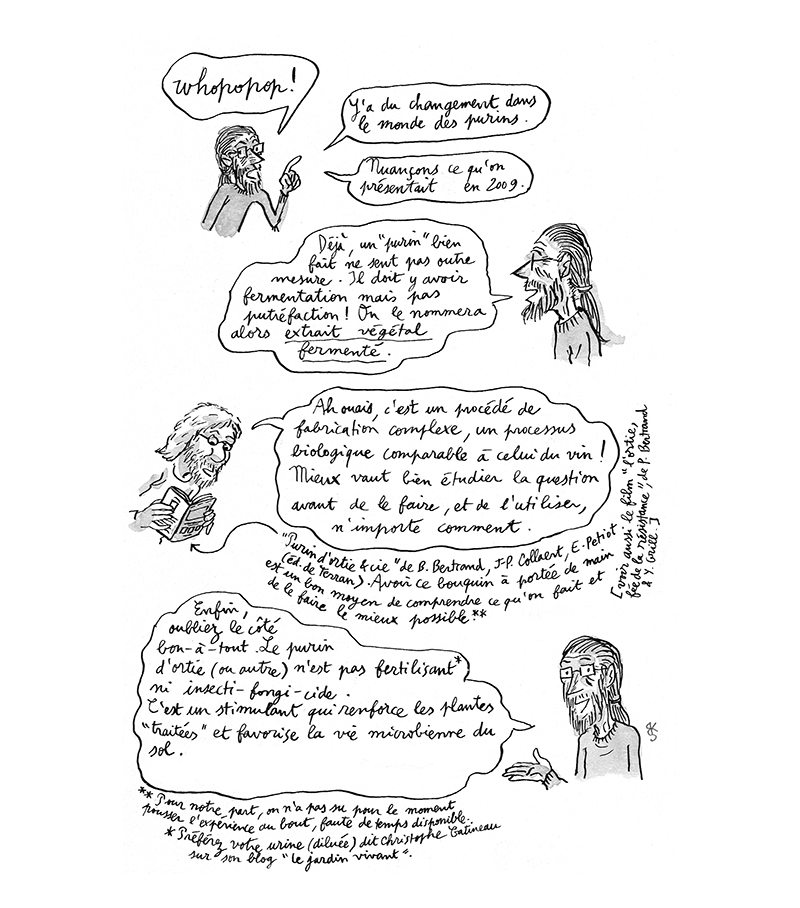 whopopop!
Y'a du changement dans
le monde des purins.
Nuançons ce qu'on
présentait en 2009.
Déjà, un "purin" bien
fait ne sent pas outre
mesure. Il doit y avoir
fermentation mais pas
putréfaction! On le nommera
alors extrait végétal
fermenté.
Ah ouais, c'est un procédé de
fabrication complexe, un processus
biologique comparable à celui du vin!
Mieux vaut bien étudier la question
avant de le faire, et de l'utiliser,
n'importe comment.
"Purin d'ortie & cie" de B. Bertrand, J-P. Collaert, E. Petiot
(éd. de Terran). Avoir ce bouquin à portée de main
est un bon moyen de comprendre ce qu'on fait et
de le faire le mieux possible.**
[voir aussi le film "l'ortie
fée de la résistance", de P. Bertrand
& Y. Grill.]
Enfin,
oubliez le côté
bon-à-tout. Le purin
d'ortie (ou autre) n'est pas fertilisant*
ni insecti-fongi-cide.
C'est un stimulant qui renforce les plantes
"traitées" et favorise la vie microbienne du
sol.
** Pour notre part, on n'a pas su pour le moment
pousser l'expérience au bout, faute de temps disponible.
* Préférez votre urine (diluée) dit Christophe Gatineau
sur son blog "le jardin vivant".